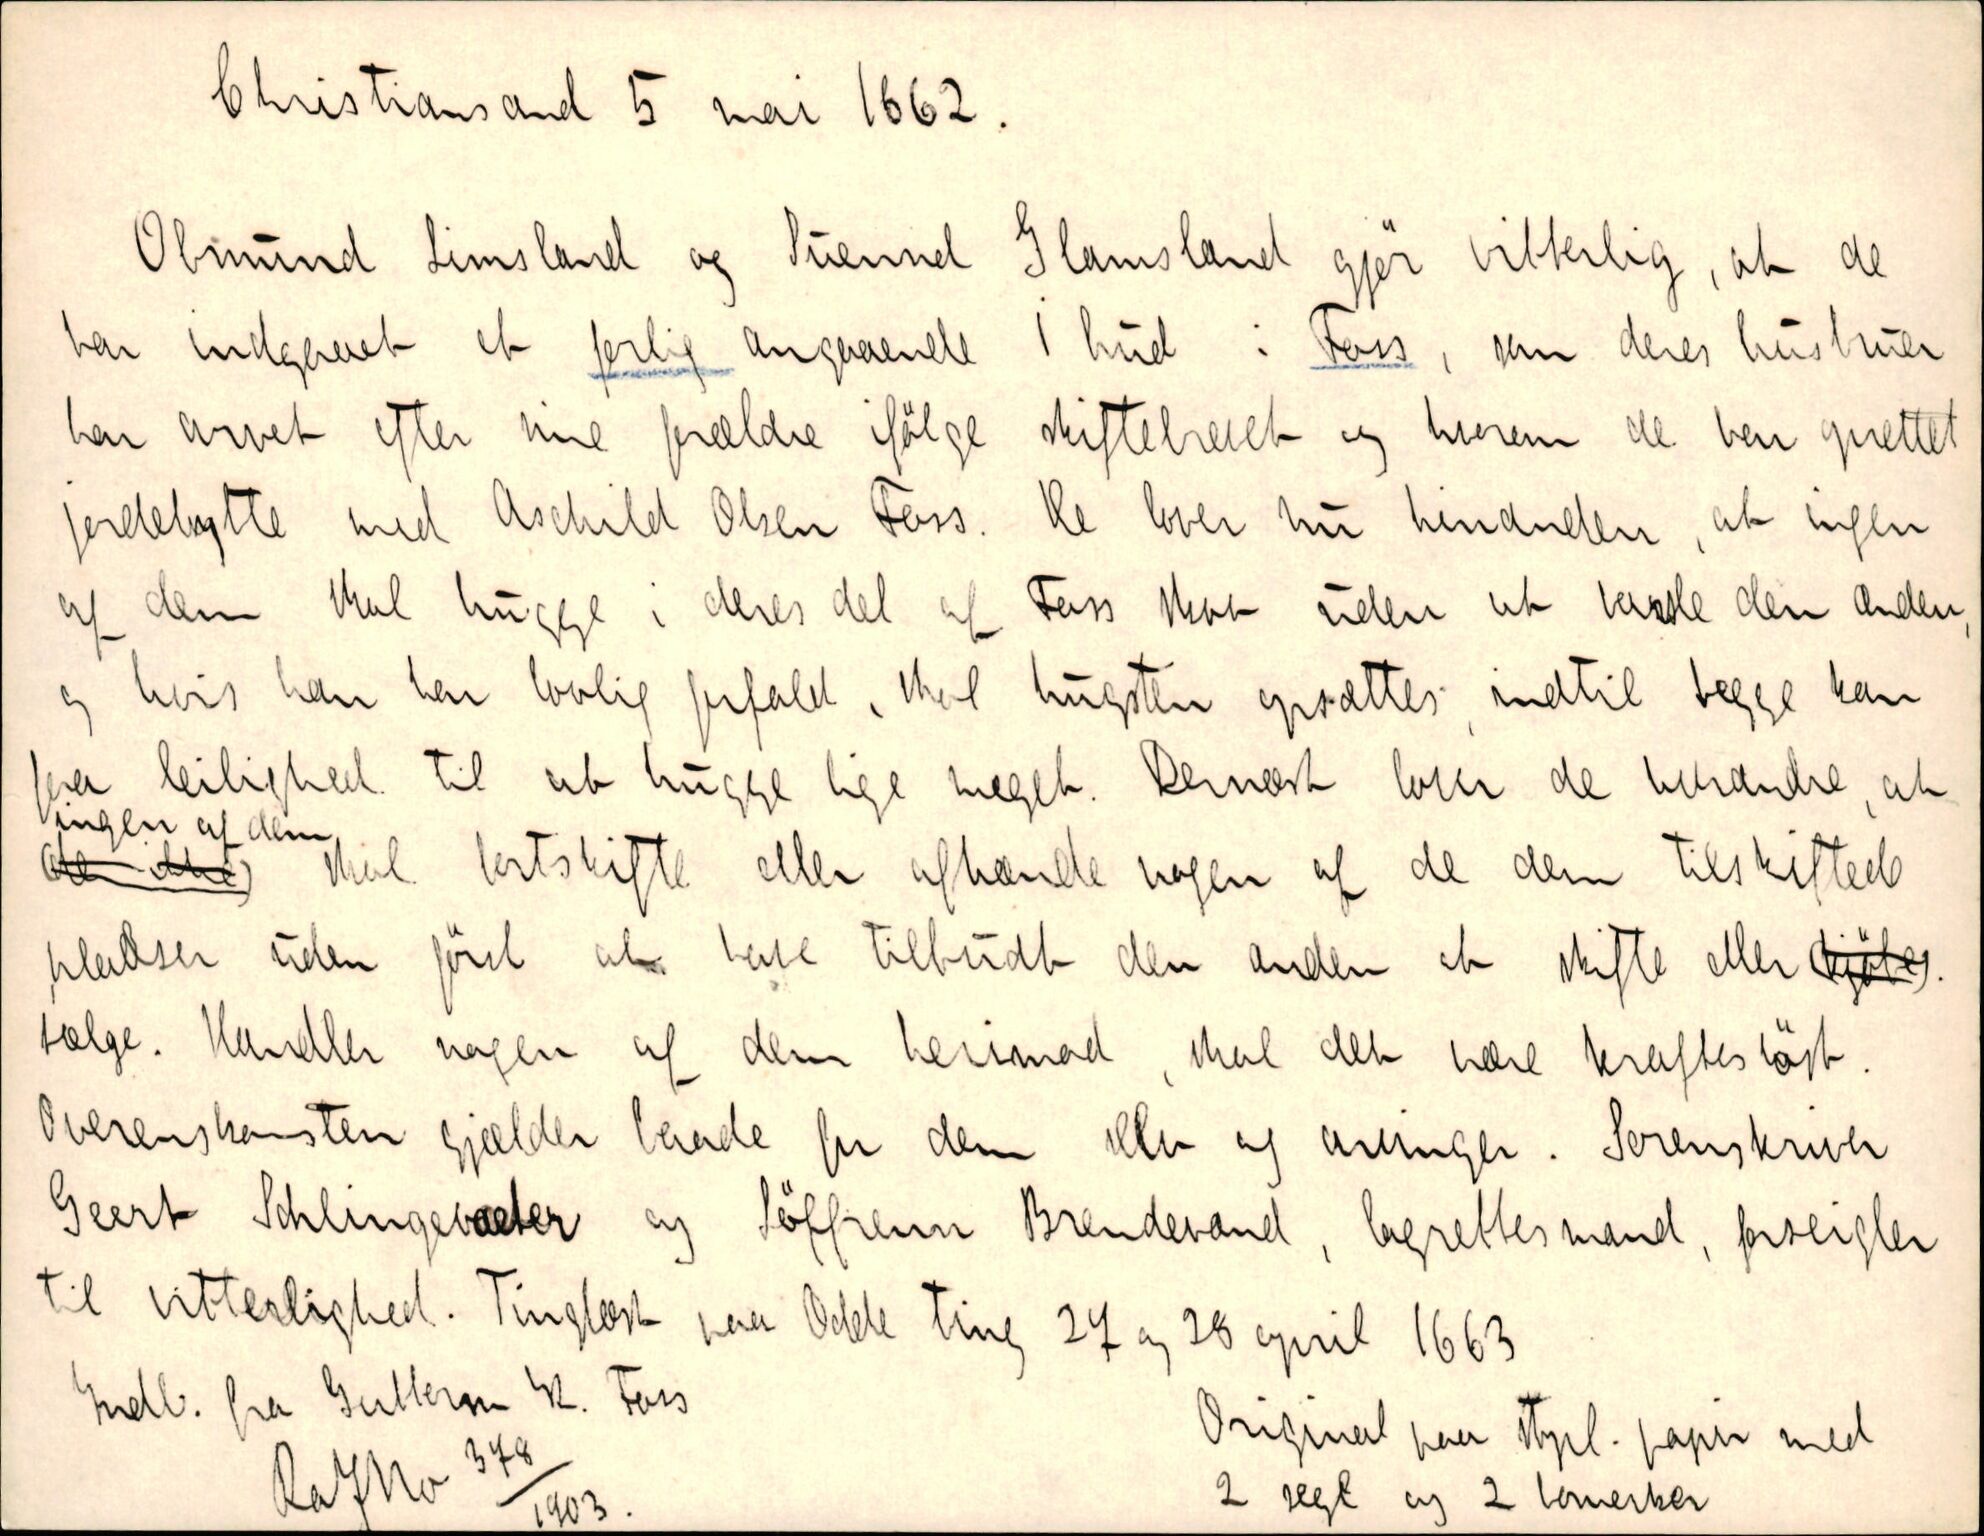 Christiansand 5 mai 1662.
Obmund Limsland og Suennd Glamsland gjör vitterlig, at de
har indgaaet et forlig angaaende 1 hud i Foss, som deres hustruer
har arvet efter sine forældre ifölge skiftebrevet og hvorom de har oprettet
jordebytte med Aschild Olsen Foss. De lover nu hinanden, at ingen
af dem skal hugge i deres del af Foss skov uden at varsle den anden,
og hvis han har lovlig forfald, skal hugsten opsættes, indtil begge kan
faa leilighed til at hugge lige meget. Dernæst lover de hverandre, at
ingen af dem
(de ikke) skal bortskifte eller afhænde nogen af de dem tilskiftede
pladser uden först at have tilbudt den anden at skifte eller (kjöbe).
sælge. Handler nogen af dem herimod, skal det være krafteslöst.
Overenskomsten gjælder baade for dem selv og arvinger. Sorenskriver
Geert Schlingevaeter og Söffrenn Brendevand, lagrettesmand, forseigler
til vitterlighed. Tinglæst paa Odde ting 27 og 28 april 1663
Indl. fra Guttorm K. Foss
Ra J No 378/1903.
Original paa stpl. papir med
2 segl og 2 bomerker